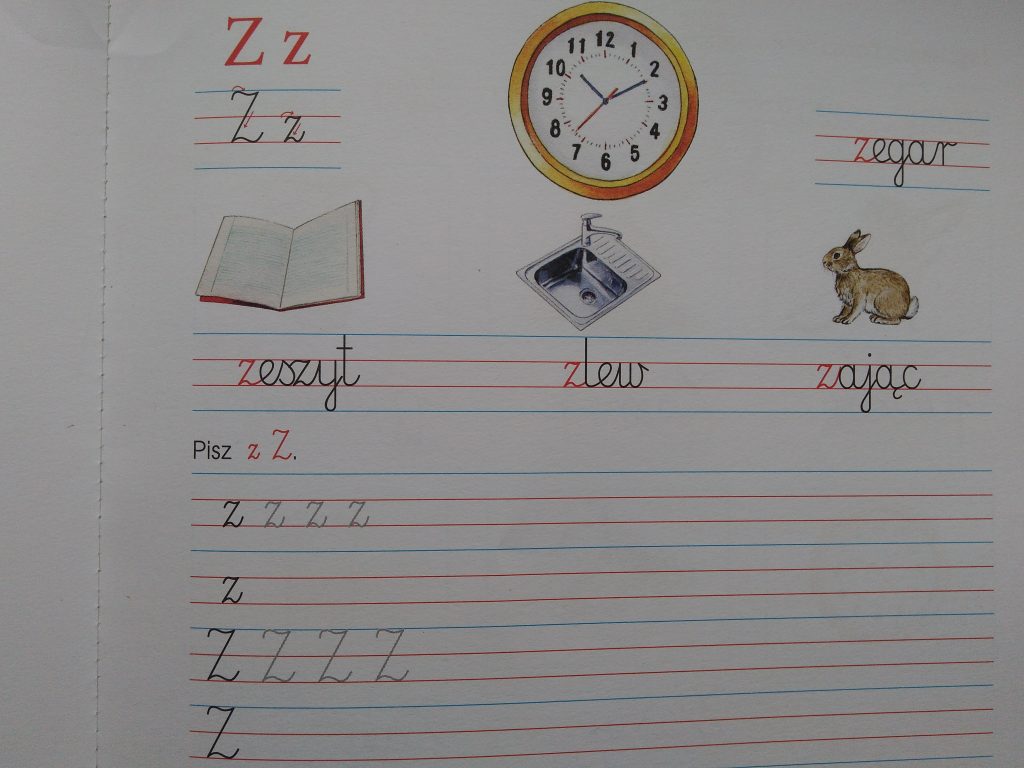 Z z
Z z
12
11 1
10 2
9 3
8 4
7 5
6
zegar
zeszyt zlew zając
Pisz z Z.
z z z z
z
Z Z Z Z
Z